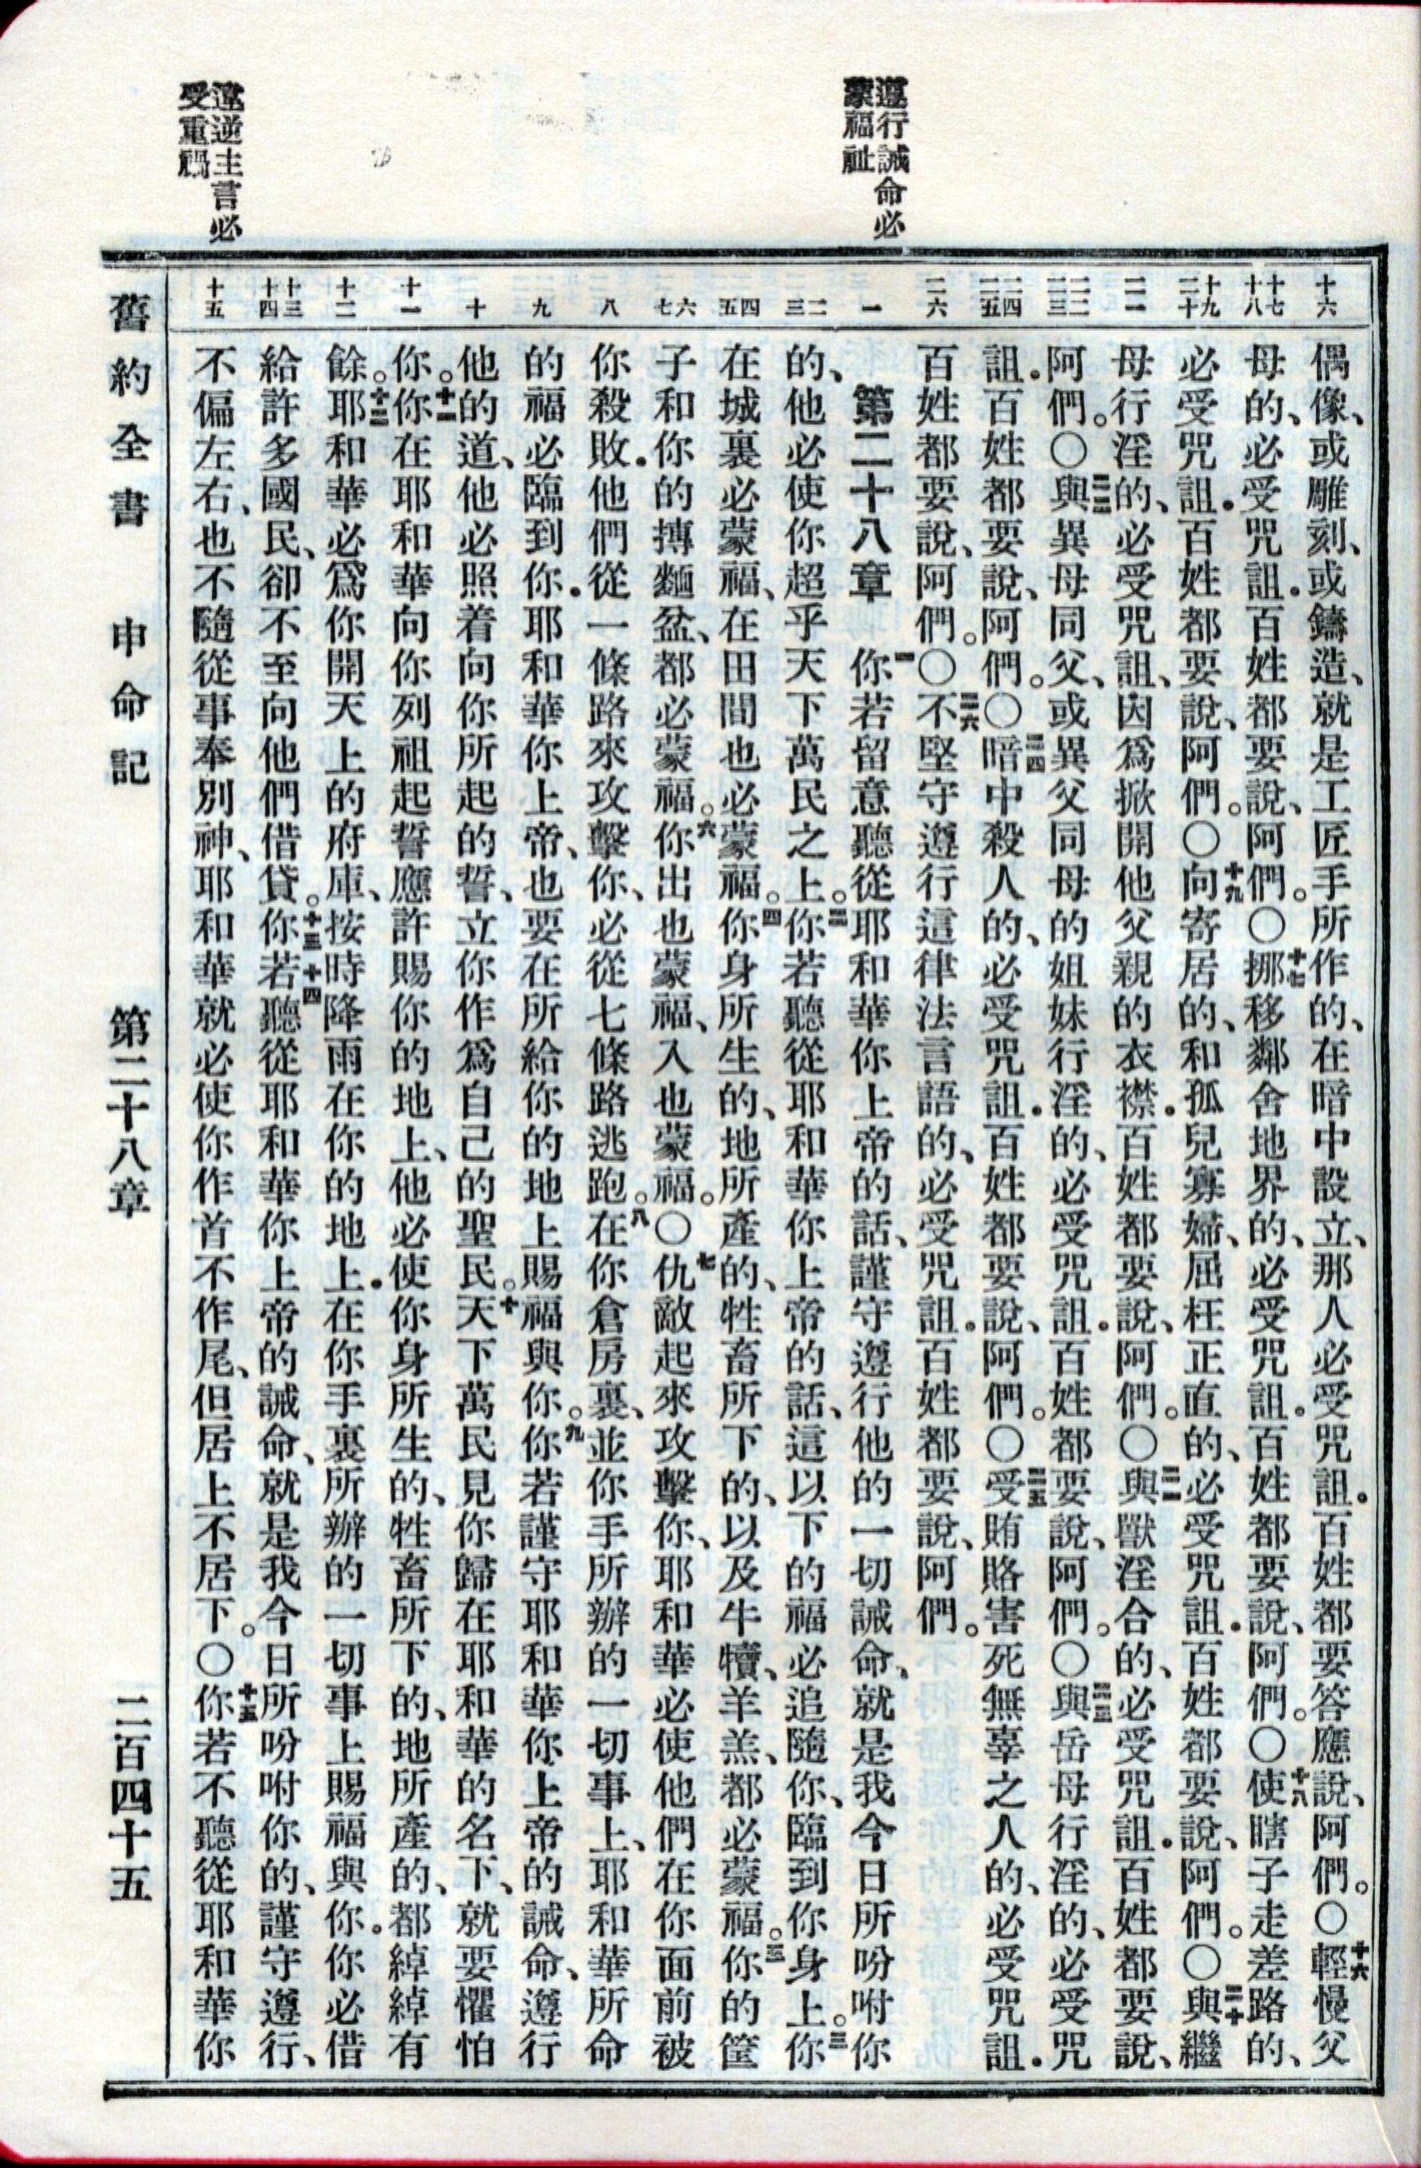 遵行誡命必
蒙福祉
違逆主言必
受重禍
十六
十七
十八
十九
二十
二一
二二
二三
二四
二五
二六
一
二
三
四
五
六
七
八
九
十
十一
十二
十三
十四
十五
偶像、或雕刻、或鑄造、就是工匠手所作的、在暗中設立、那人必受咒詛．百姓都要答應說、阿們。〇十六輕慢父
母的、必受咒詛．百姓都要說、阿們。〇十七挪移鄰舍地界的、必受咒詛．百姓都要說、阿們。〇十八使瞎子走差路的、
必受咒詛．百姓都要說、阿們。〇十九向寄居的、和孤兒寡婦、屈枉正直的、必受咒詛．百姓都要說、阿們。〇二十與繼
母行淫的、必受咒詛、因爲掀開他父親的衣襟．百姓都要說、阿們。〇二一與獸淫合的、必受咒詛．百姓都要說、
阿們。〇二二與異母同父、或異父同母的姐妹行淫的、必受咒詛．百姓都要說、阿們。〇二三與岳母行淫的、必受咒
詛．百姓都要說、阿們。〇二四暗中殺人的、必受咒詛．百姓都要說、阿們。〇二五受賄賂害死無辜之人的、必受咒詛．
百姓都要說、阿們。〇二六不堅守遵行這律法言語的、必受咒詛．百姓都要說、阿們。
第二十八章　一你若留意聽從耶和華你上帝的話、謹守遵行他的一切誡命、就是我今日所吩咐你
的、他必使你超乎天下萬民之上。二你若聽從耶和華你上帝的話、這以下的福必追隨你、臨到你身上。三你
在城裏必蒙福、在田間也必蒙福。四你身所生的、地所產的、牲畜所下的、以及牛犢、羊羔、都必蒙福。五你的筐
子和你的摶麵盆、都必蒙福。六你出也蒙福、入也蒙福。〇七仇敵起來攻擊你、耶和華必使他們在你面前被
你殺敗．他們從一條路來攻擊你、必從七條路逃跑。八在你倉房裏、並你手所辦的一切事上、耶和華所命
的福必臨到你．耶和華你上帝、也要在所給你的地上賜福與你。九你若謹守耶和華你上帝的誡命、遵行
他的道、他必照着向你所起的誓、立你作爲自己的聖民。十天下萬民見你歸在耶和華的名下、就要懼怕
你。十一你在耶和華向你列祖起誓應許賜你的地上、他必使你身所生的、牲畜所下的、地所產的、都綽綽有
餘。十二耶和華必爲你開天上的府庫、按時降雨在你的地上．在你手裏所辦的一切事上賜福與你．你必借
給許多國民、卻不至向他們借貸。十三十四你若聽從耶和華你上帝的誡命、就是我今日所吩咐你的、謹守遵行、
不偏左右、也不隨從事奉別神、耶和華就必使你作首不作尾、但居上不居下。〇十五你若不聽從耶和華你
舊約全書　申命記　第二十八章　二百四十五